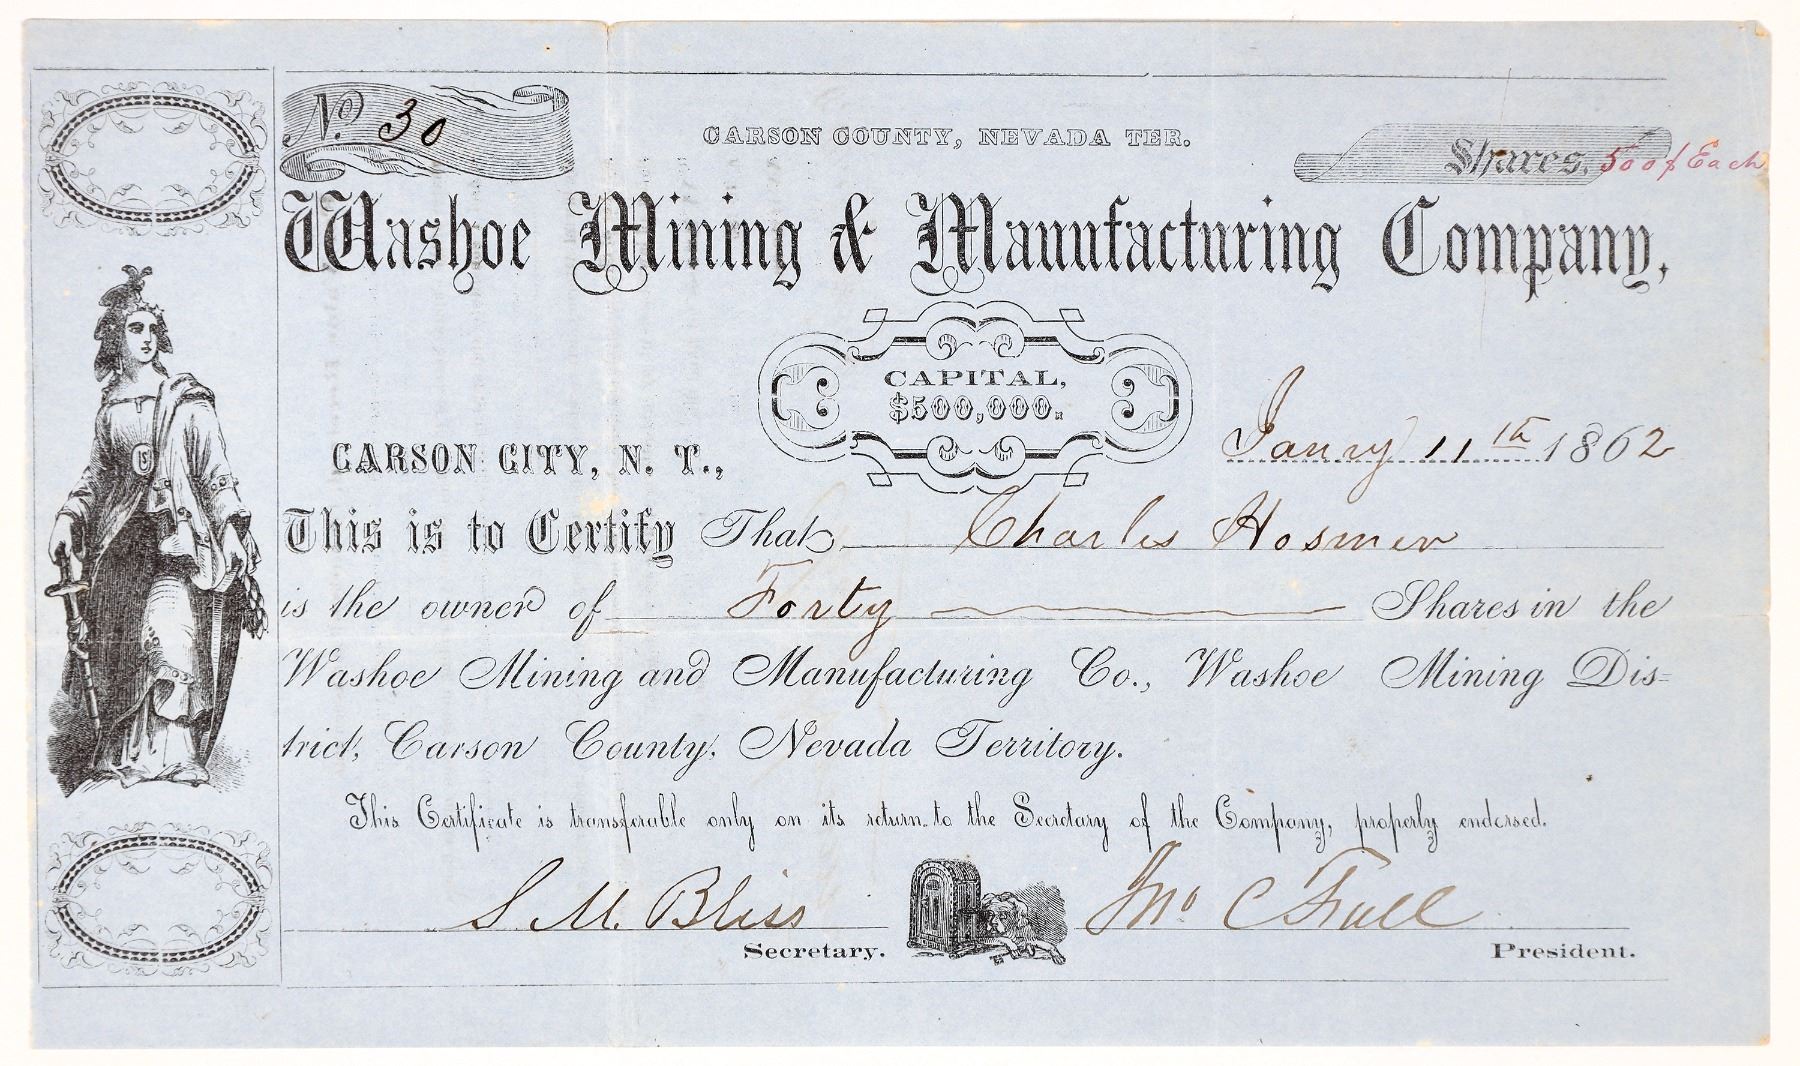 No. 30
CARSON COUNTY, NEVADA TER.
Shares, 500$ Each
Washoe Mining & Manufacturing Company,
CAPITAL,
$500,000.
CARSON CITY, N. T., Janry 11th 1862
This is to Certify That Charles Hosmer
is the owner of Forty Shares in the
Washoe Mining and Manufacturing Co., Washoe Mining Dis=
trict, Carson County, Nevada Territory.
This Certificate is transferable only on its return to the Secretary of the Company, properly endorsed.
S. M. Bliss
Secretary.
Jno C
President.
US